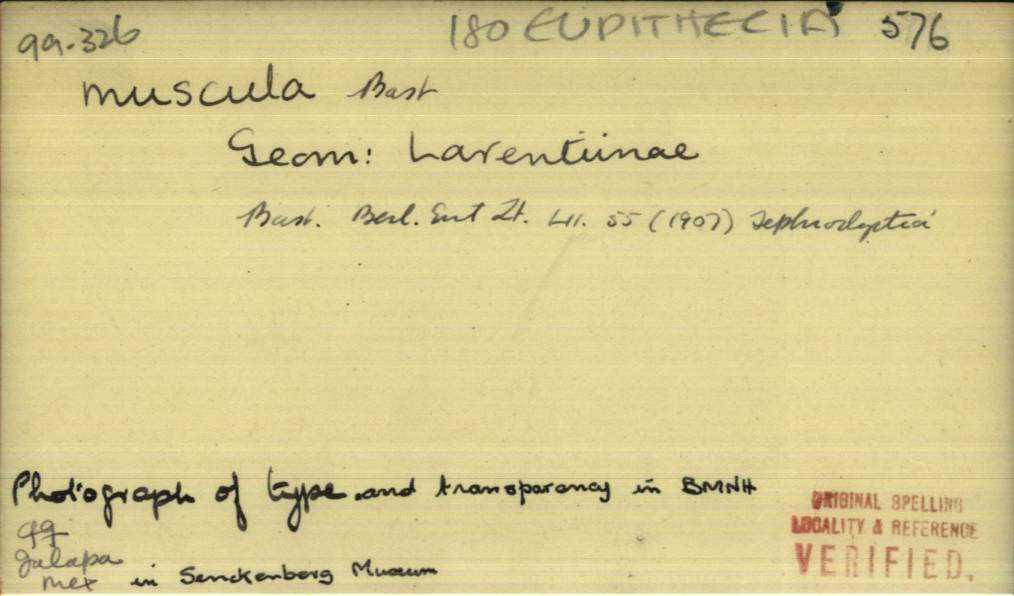 99-326 180 EUPITHECIA 576
muscula Bast
Geom: Larentiinae
Bast. Berl. Ent Zt. LII. 55 (1907) Tephroclystia
Photograph of type and transparency in BMNH
Jalapa
Mex in Senckenberg Museum
ORIGINAL SPELLING
LOCALITY & REFERENCE
VERIFIED.